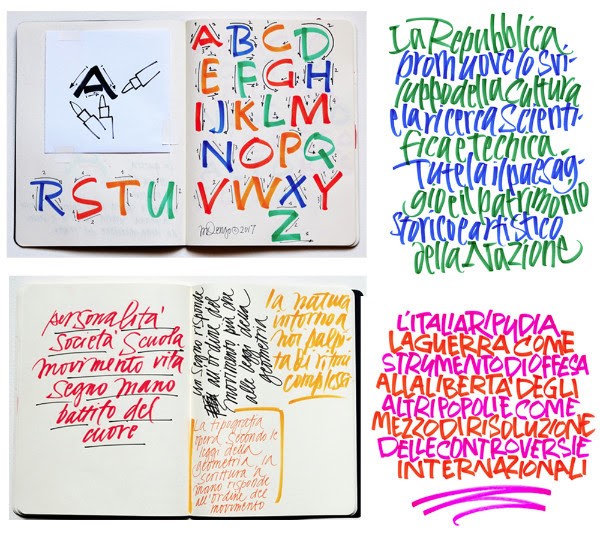 A
R S T U
A B C D
E F G H
I J K L M
N O P Q
V W X Y
Z
©2017
La Repubblica
promuove lo svi-
luppo della cultura
e la ricerca scienti-
fica e tecnica.
Tutela il paesag-
gio e il patrimonio
storico e artistico
della Nazione
personalità
società scuola
movimento vita
segno mano
battito del
cuore
un segno risponde
ordine del
movimento più che
alle leggi della
geometria
la natura
intorno a
noi palpi-
ta di ritmi
complessi
La tipografia
opera secondo le
leggi della
geometria la
scrittura a
mano risponde
all'ordine del
movimento
L'ITALIA RIPUDIA
LA GUERRA COME
STRUMENTO DI OFFESA
ALLA LIBERTA DEGLI
ALTRI POPOLI E COME
MEZZO DI RISOLUZIONE
DELLE CONTROVERSIE
INTERNAZIONALI